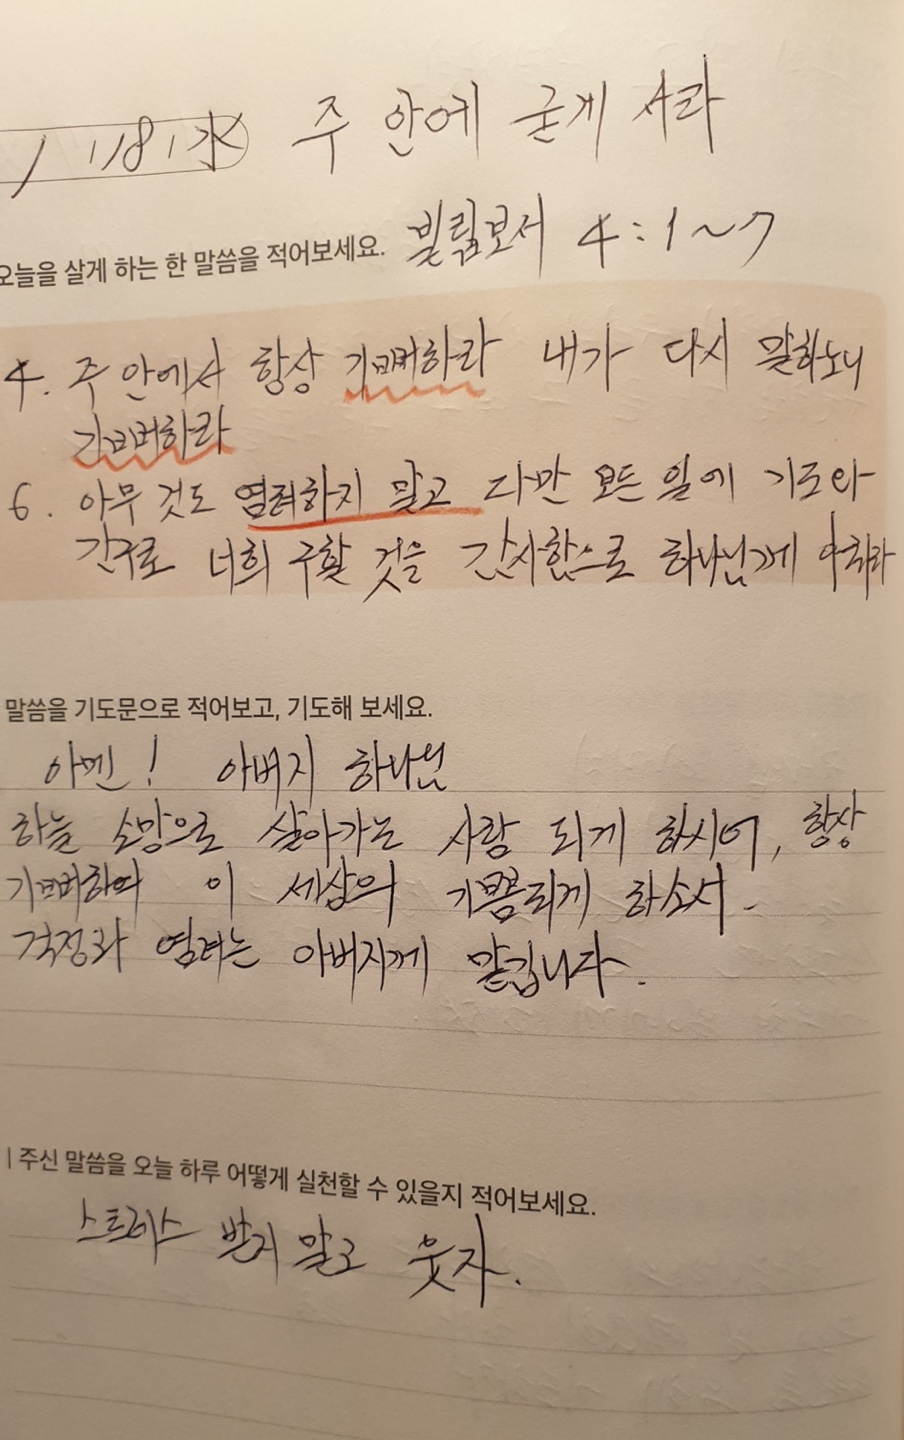 / 1/8 / 水 주 안에 굳게 서라
오늘을 살게 하는 한 말씀을 적어보세요. 빌립보서 4:1~7
4. 주 안에서 항상 기뻐하라 내가 다시 말하노니
기뻐하라
6. 아무 것도 염려하지 말고 다만 모든 일에 기도와
간구로 너희 구할 것을 감사함으로 하나님께 아뢰라
말씀을 기도문으로 적어보고, 기도해 보세요.
아멘! 아버지 하나님
하늘 소망으로 살아가는 사람 되게 하시어, 항상
기뻐하며 이 세상의 기쁨되게 하소서.
걱정과 염려는 아버지께 맡깁니다.
| 주신 말씀을 오늘 하루 어떻게 실천할 수 있을지 적어보세요.
스트레스 받지 말고 웃자.